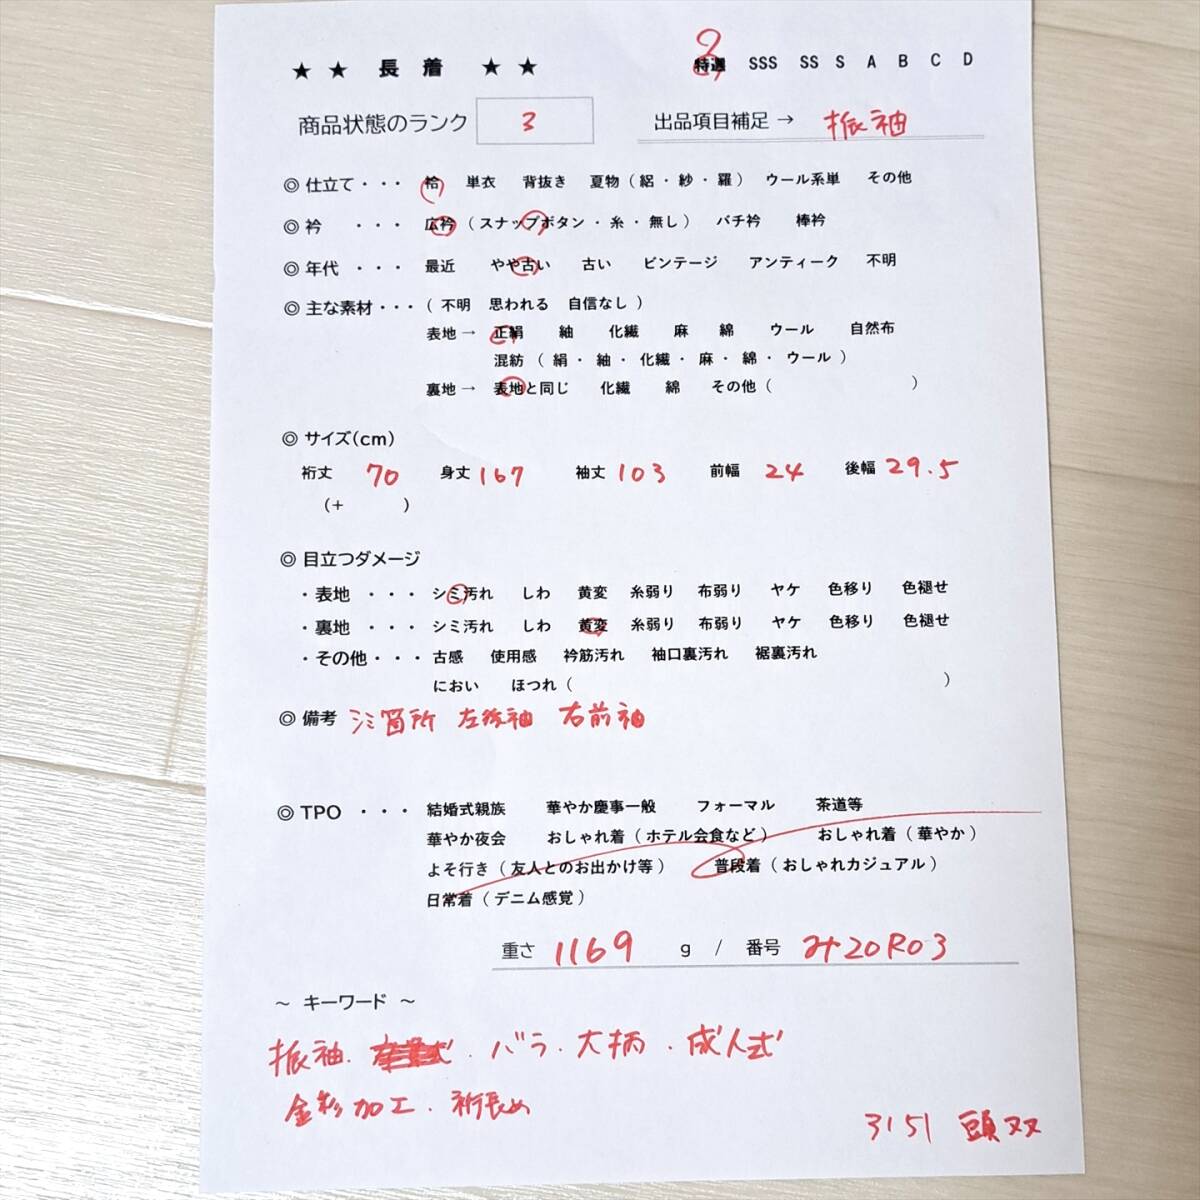 ★ ★ 長 着 ★ ★ 特選 SSS SS S A B C D
商品状態のランク 3 出品項目補足 → 振袖
◎ 仕立て ・・・ 袷 単衣 背抜き 夏物 ( 絽 ・ 紗 ・ 羅 ) ウール系単 その他
◎ 衿 ・・・ 広衿 ( スナップボタン ・ 糸 ・ 無し ) バチ衿 棒衿
◎ 年代 ・・・ 最近 やや古い 古い ビンテージ アンティーク 不明
◎ 主な素材 ・・・ ( 不明 思われる 自信なし )
表地 → 正絹 紬 化繊 麻 綿 ウール 自然布
混紡 ( 絹 ・ 紬 ・ 化繊 ・ 麻 ・ 綿 ・ ウール )
裏地 → 表地と同じ 化繊 綿 その他 ( )
◎ サイズ(cm)
裄丈 70 身丈 167 袖丈 103 前幅 24 後幅 29.5
(+ )
◎ 目立つダメージ
・ 表地 ・・・ シミ汚れ しわ 黄変 糸弱り 布弱り ヤケ 色移り 色褪せ
・ 裏地 ・・・ シミ汚れ しわ 黄変 糸弱り 布弱り ヤケ 色移り 色褪せ
・ その他 ・・・ 古感 使用感 衿筋汚れ 袖口裏汚れ 裾裏汚れ
におい ほつれ ( )
◎ 備考 シミ箇所 左後袖 右前袖
◎ TPO ・・・ 結婚式親族 華やか慶事一般 フォーマル 茶道等
華やか夜会 おしゃれ着 ( ホテル会食など ) おしゃれ着 ( 華やか )
よそ行き ( 友人とのお出かけ等 ) 普段着 ( おしゃれカジュアル )
日常着 ( デニム感覚 )
重さ 1169 g / 番号 み20R03
～ キーワード ～
振袖・ ・バラ・大柄・成人式
金彩加工・裄長め
3151 頭双